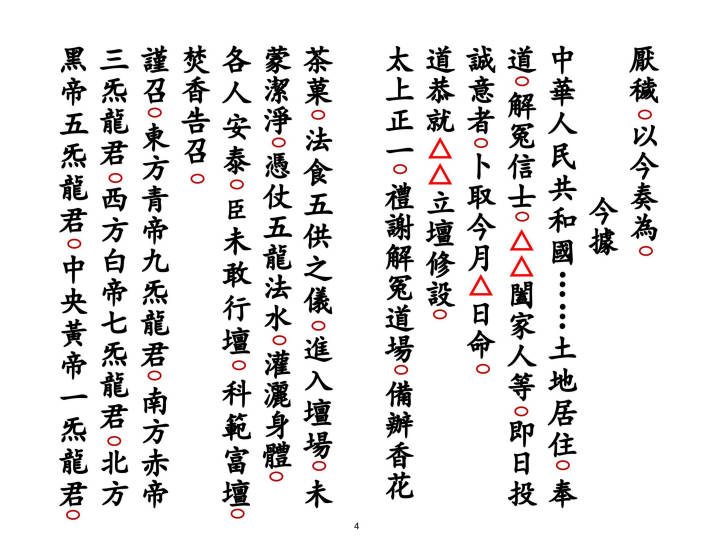 厭穢。以今奏為。
今據
中華人民共和國……土地居住。奉
道。解冤信士。△△闔家人等。即日投
誠意者。卜取今月△日命。
道恭就△△立壇修設。
太上正一。禮謝解冤道場。備辦香花
茶菓。法食五供之儀。進入壇場。未
蒙潔淨。憑仗五龍法水。灌灑身體。
各人安泰。臣未敢行壇。科範富壇。
焚香告召。
謹召。東方青帝九炁龍君。南方赤帝
三炁龍君。西方白帝七炁龍君。北方
黑帝五炁龍君。中央黃帝一炁龍君。
4